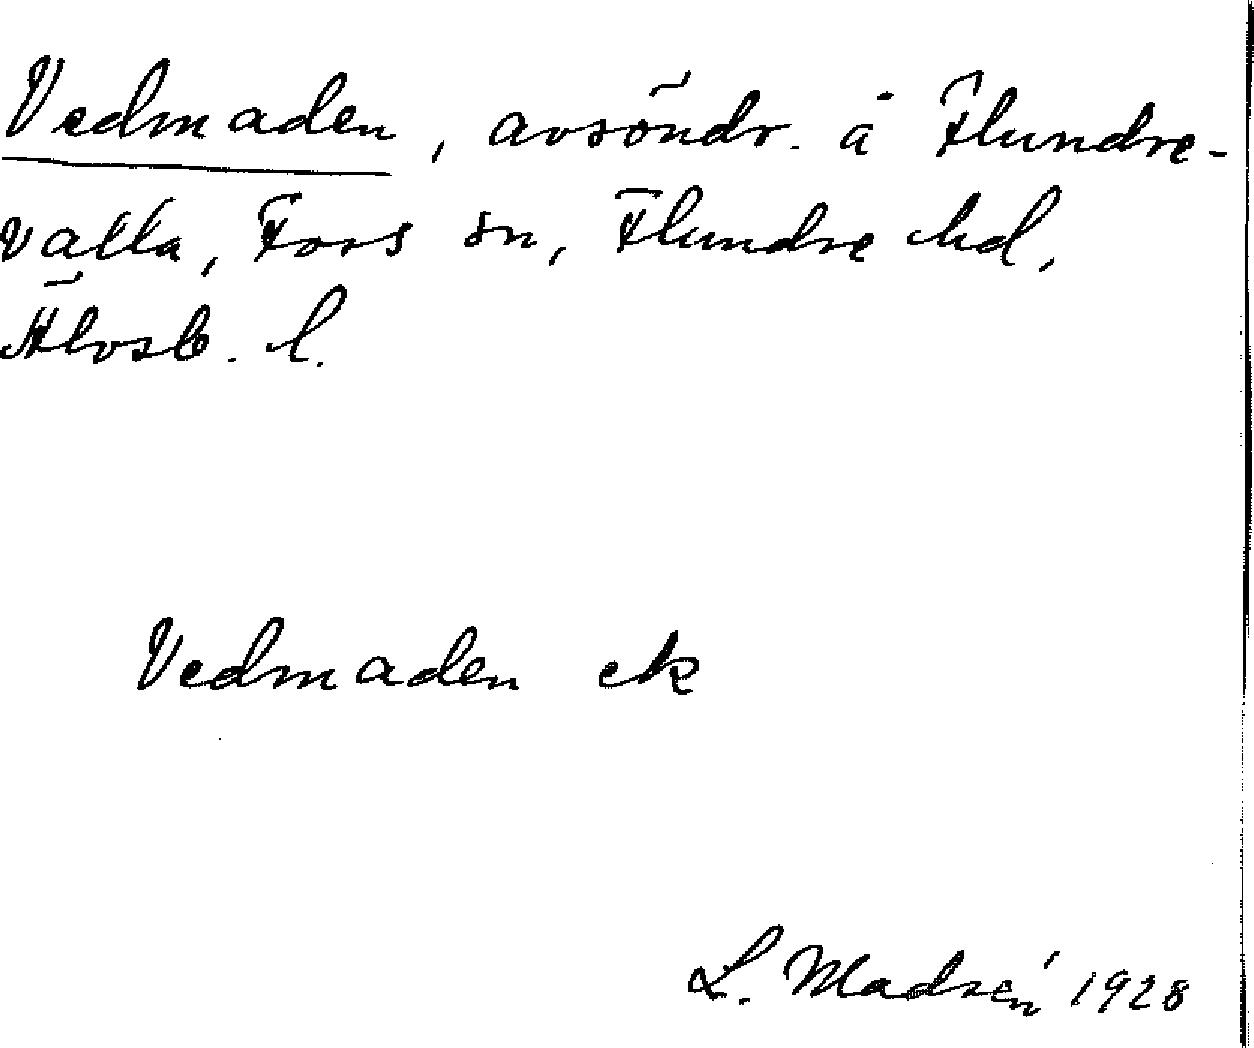 Vedmaden, avsöndr. å Flundre-
valla, Fors sn, Flundre hd,
Älvsb. l.
Vedmaden ek
L. Madsén 1928